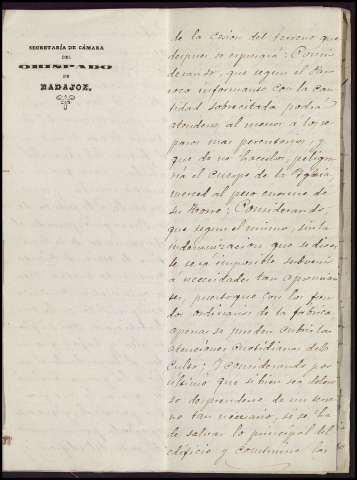 SECRETARÍA DE CÁMARA
DEL
OBISPADO
DE
BADAJOZ.
de la cesion del terreno que
despues se espresará: Consi
derando, que segun el Pár
roco informante con la can
tidad sobrecitada podrá
atenderse al menos á los re
paros mas perentorios, y
que de no hacerlos, peligra
ria el cuerpo de la Yglesia,
merced al peso enorme de
su Torre: Considerando,
que segun el mismo, sin la
indemnizacion que se dice,
le será imposible subvenir
á necesidades tan apremian
tes, puesto que con los fon
dos ordinarios de la fábrica
apenas se pueden cubrir las
atenciones cuotidianas del
Culto: Y considerando por
último que si bien sea doloro
so desprenderse de un terre
no tan necesario, si se ha
de salvar lo principal del
edificio y continuar los